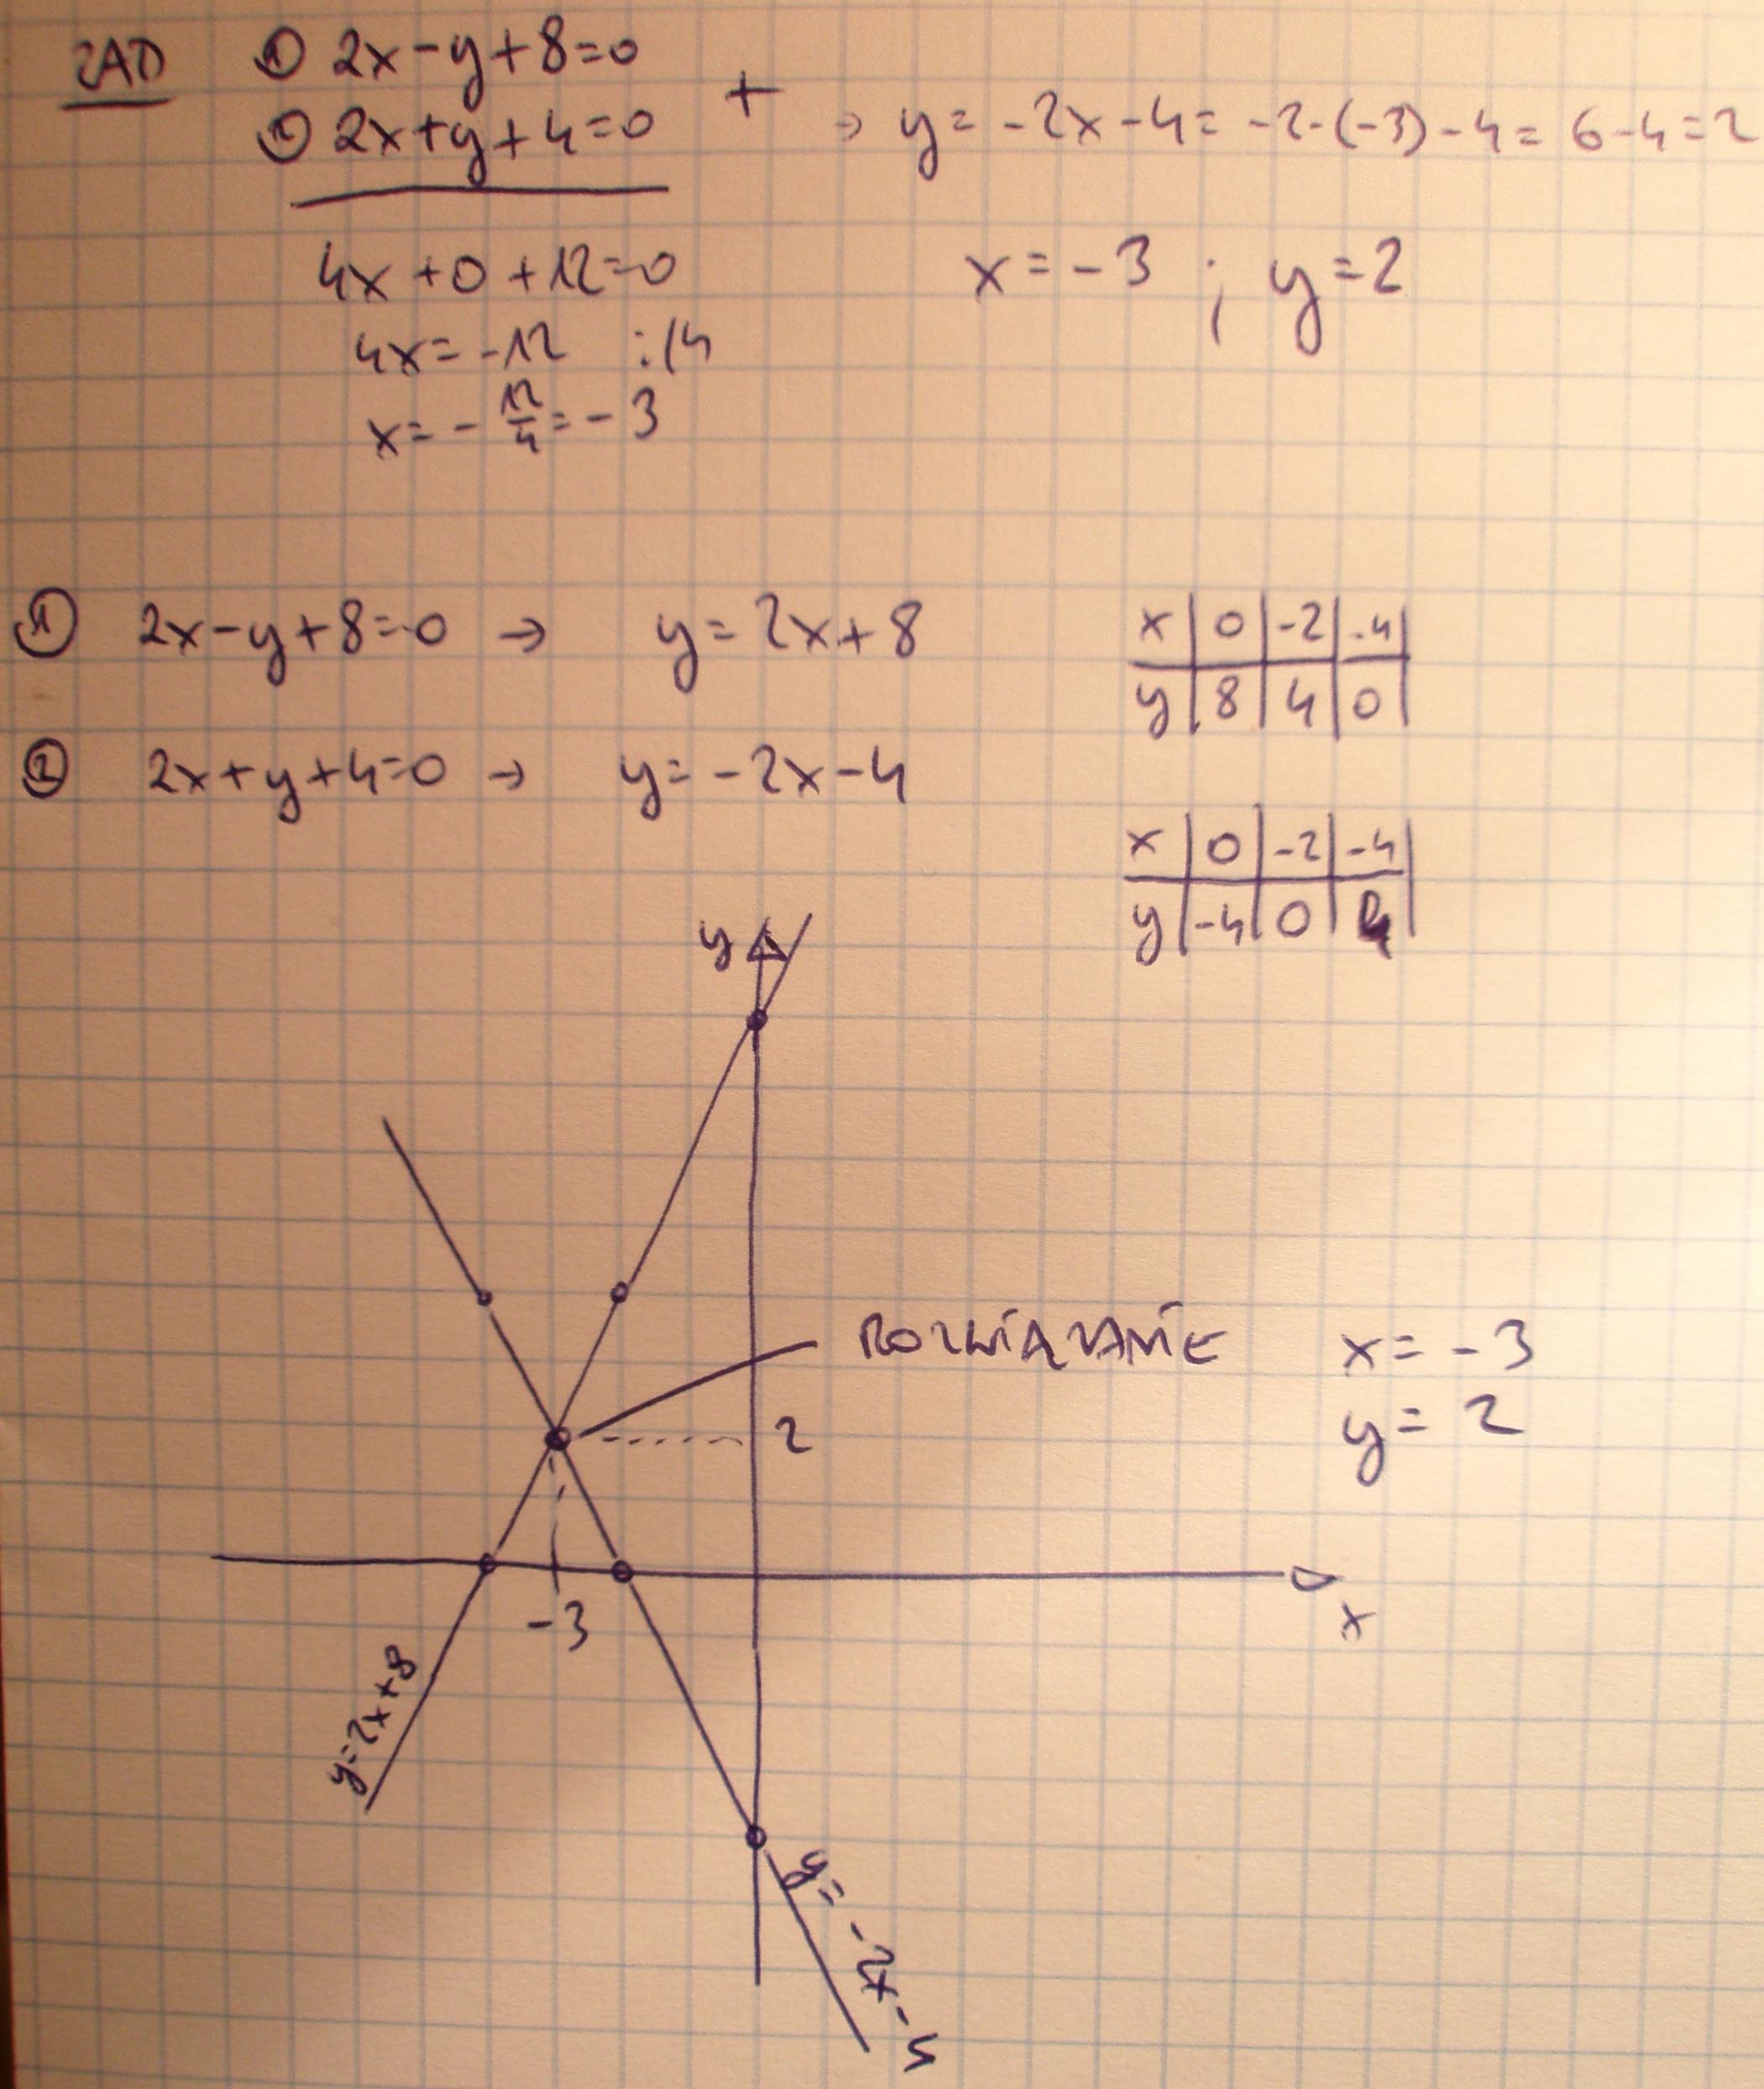 ZAD ① 2x-y+8=0
② 2x+y+4=0 + → y=-2x-4=-2·(-3)-4=6-4=2
4x+0+12=0 x=-3 ; y=2
4x=-12 :/4
x=-12/4=-3
① 2x-y+8=0 → y=2x+8
x | 0 | -2 | -4 |
y | 8 | 4 | 0 |
② 2x+y+4=0 → y=-2x-4
x | 0 | -2 | -4 |
y | -4 | 0 | 4 |
y
ROZWIĄZANIE x=-3
y=2
2
-3
x
y=2x+8
y=-2x-4